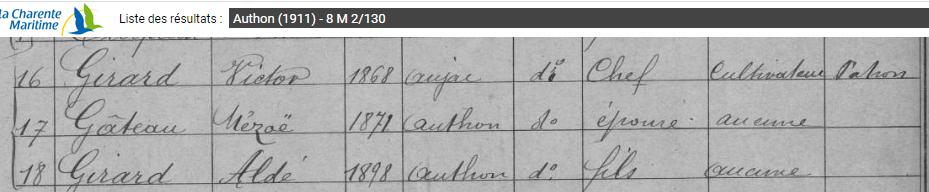 la Charente
Maritime
Liste des résultats : Authon (1911) - 8 M 2/130
16 Girard Victor 1868 aujac do Chef Cultivateur Patron
17 Gâteau Mézaë 1871 authon do épouse aucune
18 Girard Aldé 1898 authon do fils aucune